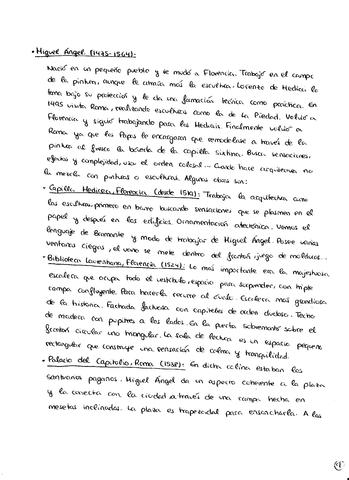 • Miguel Ángel (1475-1564):
Nació en un pequeño pueblo y se mudó a Florencia. Trabajó en el campo
de la pintura, aunque le atraía más la escultura. Lorenzo de Medici lo
toma bajo su protección y le da una formación teórica como práctica. En
1495 visita Roma, realizando esculturas como la de La Piedad. Volvió a
Florencia y siguió trabajando para los Medicis. Finalmente volvió a
Roma ya que los Papas le encargaron que remodelase a través de la
pintura al fresco la bóveda de la capilla Sixtina. Busca sensaciones,
efectos y complejidad, usa el orden colosal... Cuando hace arquitectura, no
la mezcla con pinturas o esculturas. Algunas obras son:
• Capilla Medicea, Florencia (desde 1519): Trabaja la arquitectura como
las esculturas, primero en barro buscando sensaciones que se plasmen en el
papel y después en los edificios. Ornamentación arquitectónica. Vemos el
lenguaje de Bramante y modo de trabajar de Miguel Ángel. Posee varias
ventanas ciegas, el vano se mete dentro del frontón, juego de molduras...
• Biblioteca Laurentiana, Florencia (1524): Lo más importante era la majestuosa
escalera que ocupa todo el vestíbulo, espacio para sorprender, con triple
rampa confluyente. Para hacerla recurre al óvalo. Escalera más grandiosa
de la historia. Fachada fastuosa con capiteles de orden dudoso. Techo
de madera con pupitres a los lados. En la puerta sobremonta sobre el
frontón circular uno triangular. La sala de lectura es un espacio pequeño
rectangular que construye una sensación de calma y tranquilidad.
• Palacio del Capitolio, Roma (1538): En dicha colina estaban los
santuarios paganos. Miguel Ángel da un aspecto coherente a la plaza
y la conecta con la ciudad a través de una rampa hecha en
mesetas inclinadas. La plaza es trapezoidal para ensancharla. A los